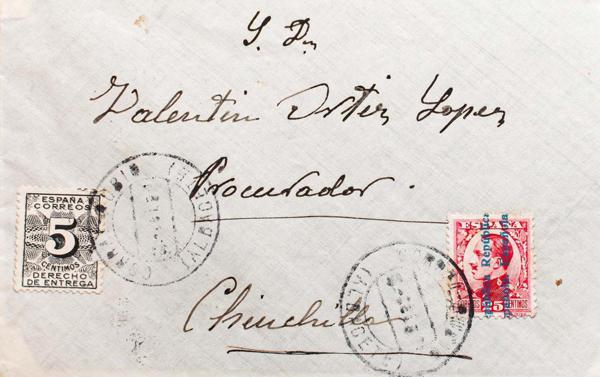 S. Dn
Valentin Ortiz Lopez
Procurador.
Chinchilla
ESPAÑA
CORREOS
5
CENTIMOS
DERECHO
DE ENTREGA
(ALBACETE)
ESPAÑA
República Española
CENTIMOS
(ALBACETE)